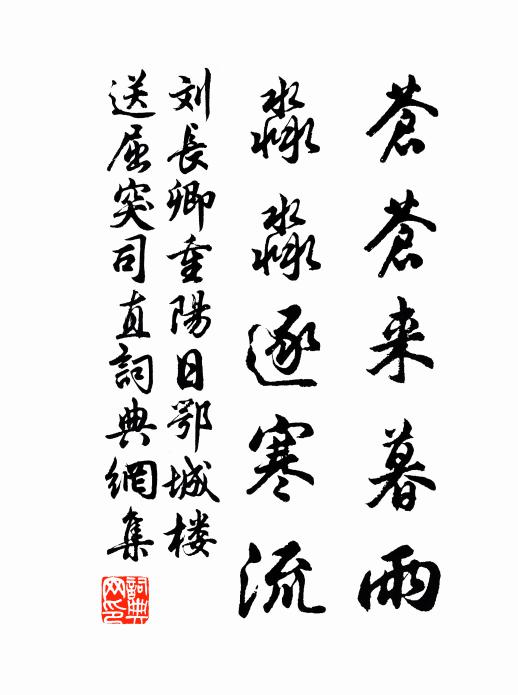 蒼蒼来暮雨
淼淼逐寒流
刘長卿重陽日鄂城楼
送屈突司直詞典網集
詞典網印